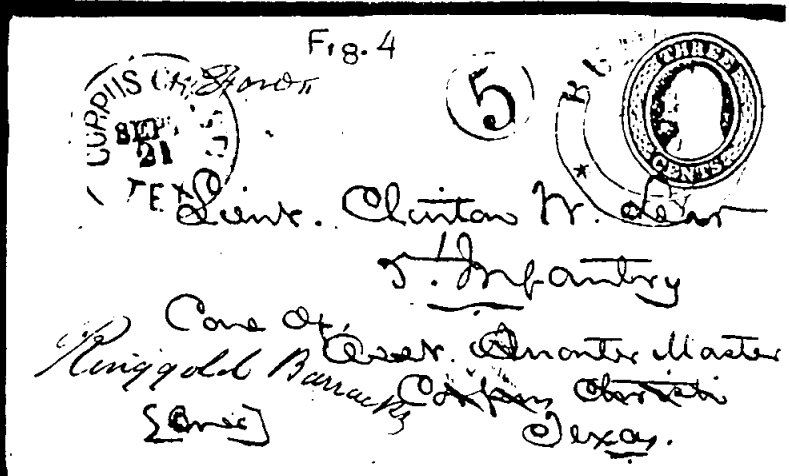 Fig. 4
CORPUS CHRISTI
SEP
21
TEX
5
THREE
CENTS
Lieut. Clinton W. Lear
5th Infantry
Care of,
Asst. Quarter Master
Ringgold Barracks
Corpus Christi
Texas.